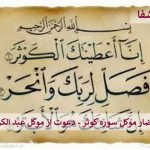 شفا
بسم الله الرحمن الرحيم
إِنَّا أَعْطَيْنَكَ الْكَوْثَرَ
فَصَلِّ لِرَبِّكَ وَانْحَرْ
ضار موکل سوره کوثر - دعوت از موکل عبد الک